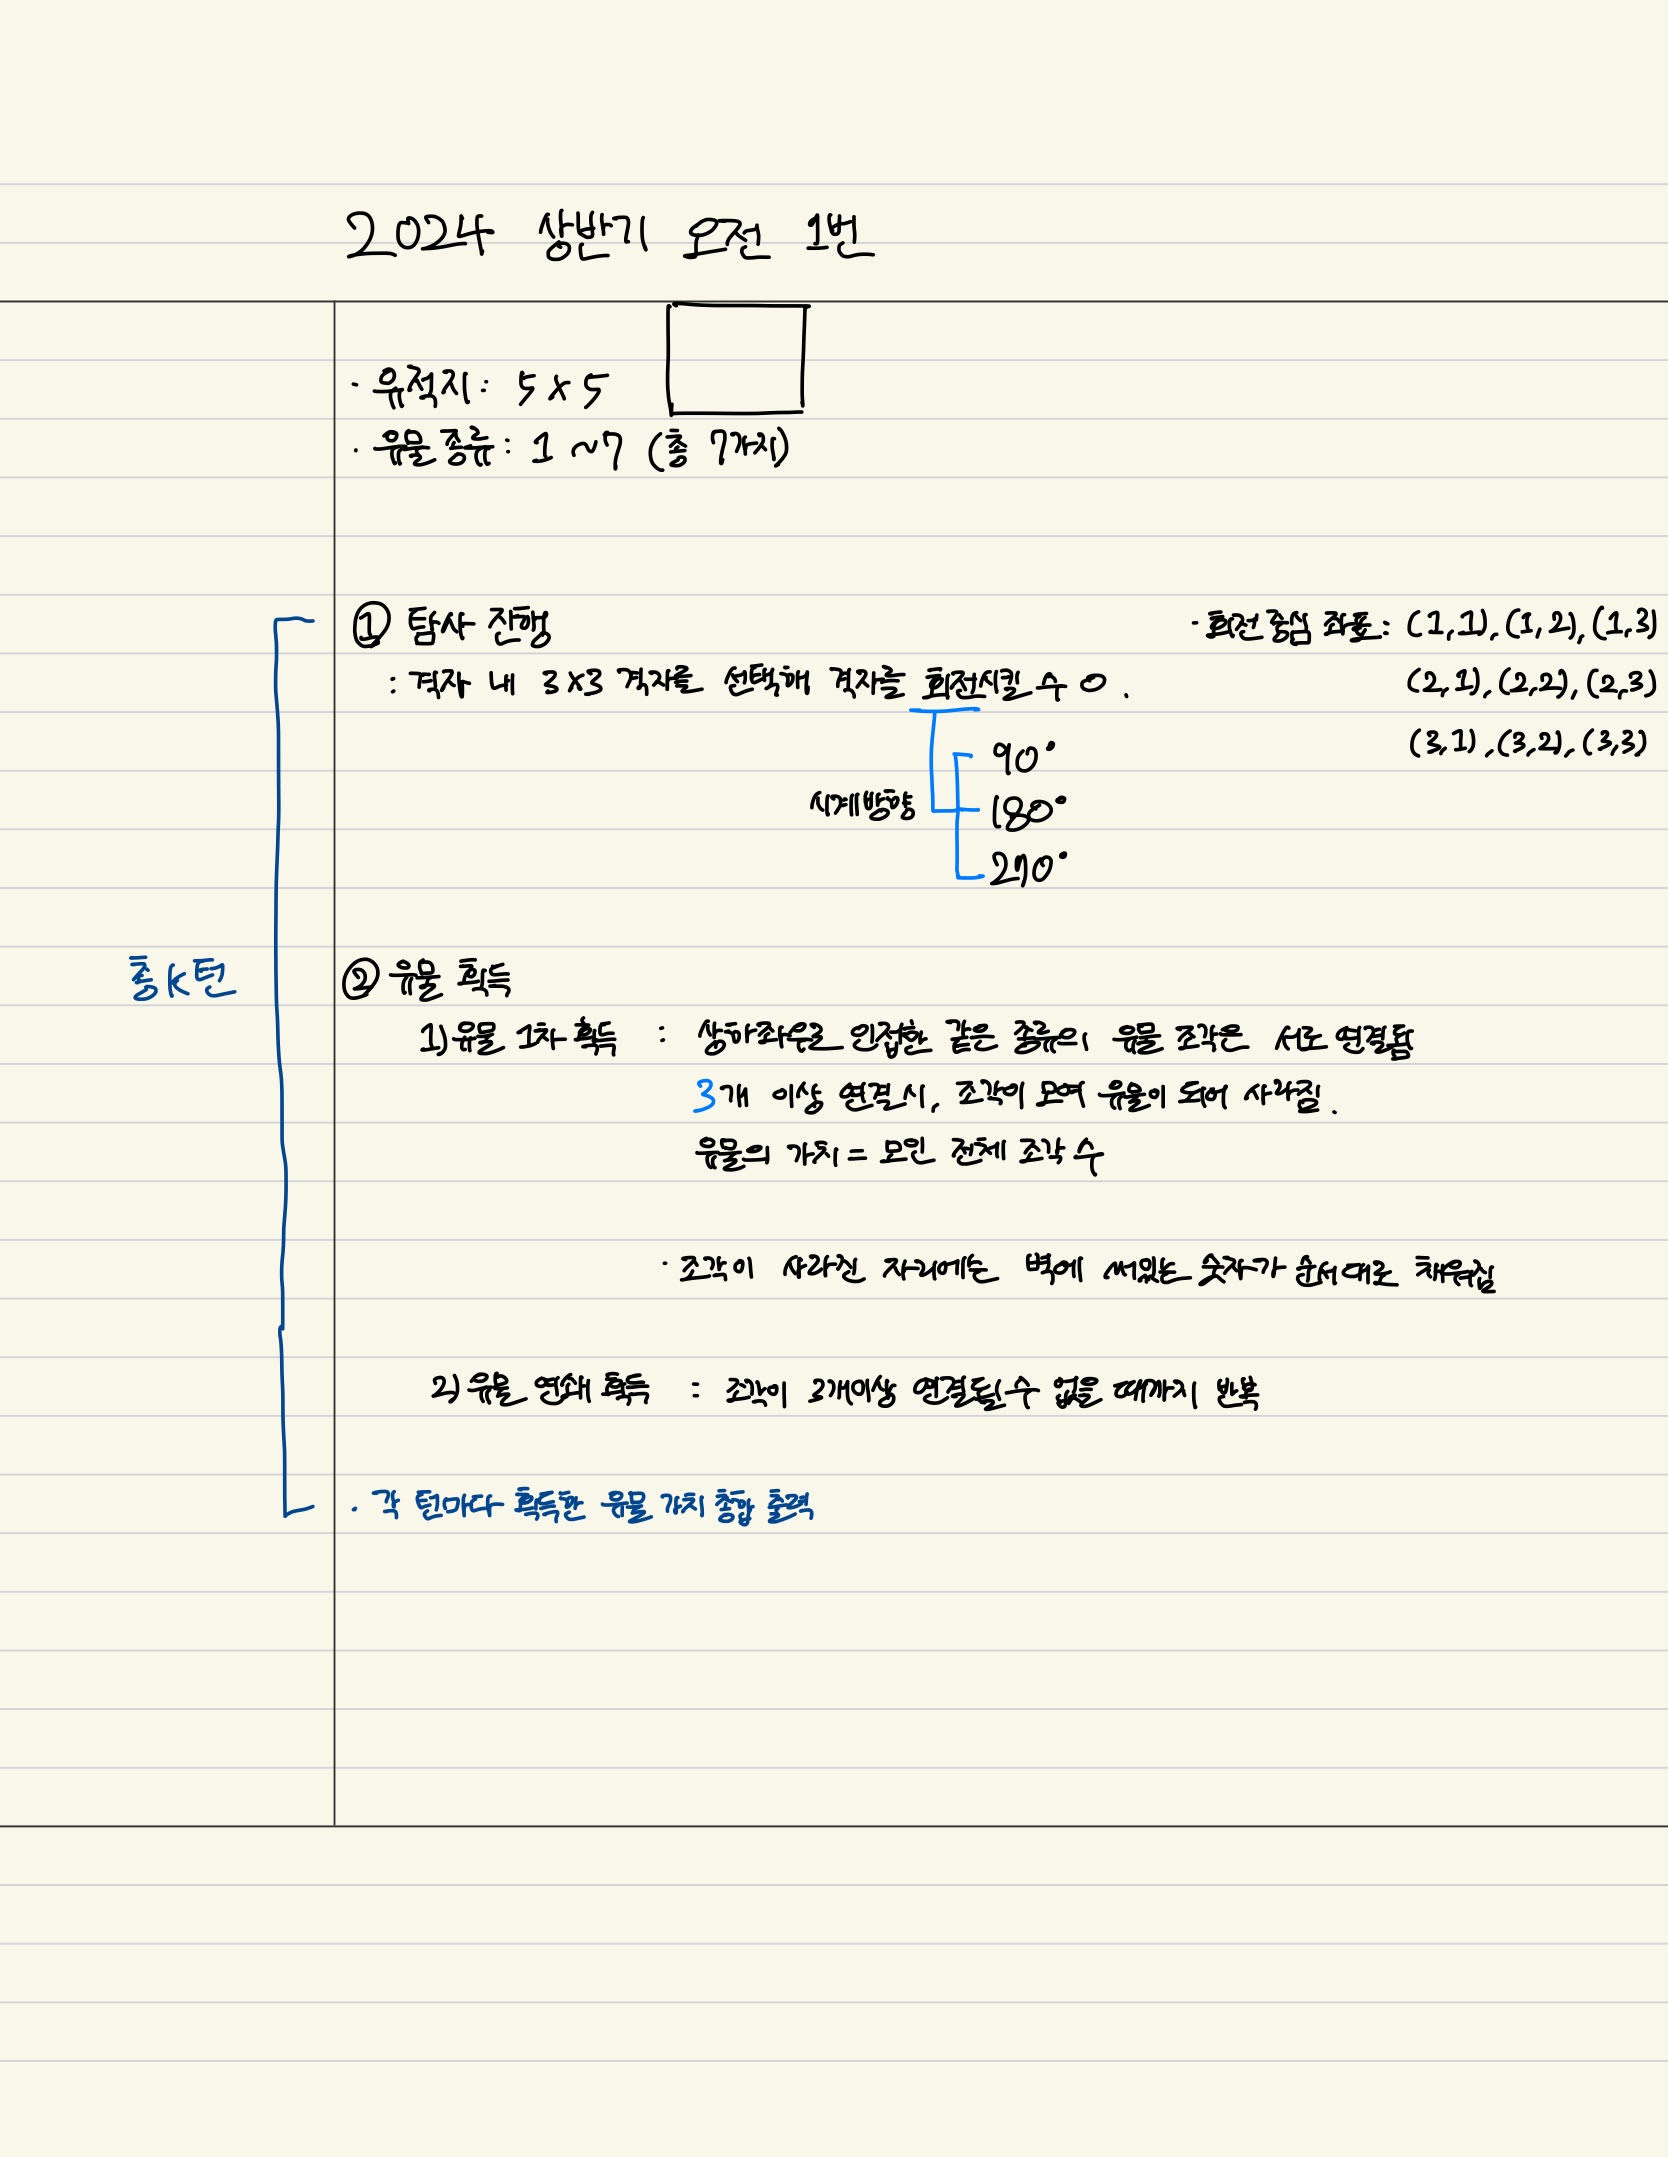 2024 상반기 오전 1번
· 유적지 : 5 x 5
· 유물 종류 : 1 ~ 7 (총 7가지)
① 탐사 진행
: 격자 내 3x3 격자를 선택해 격자를 회전시킬 수 O .
· 회전 중심 좌표 : (1,1), (1,2), (1,3)
(2,1), (2,2), (2,3)
(3,1), (3,2), (3,3)
90°
시계방향 180°
270°
총 K턴
② 유물 획득
1) 유물 1차 획득 : 상하좌우로 인접한 같은 종류의 유물 조각은 서로 연결됨
3개 이상 연결 시, 조각이 모여 유물이 되어 사라짐.
유물의 가치 = 모인 전체 조각 수
· 조각이 사라진 자리에는 벽에 써있는 숫자가 순서대로 채워짐
2) 유물 연쇄 획득 : 조각이 3개이상 연결될 수 없을 때까지 반복
· 각 턴마다 획득한 유물 가치 총합 출력